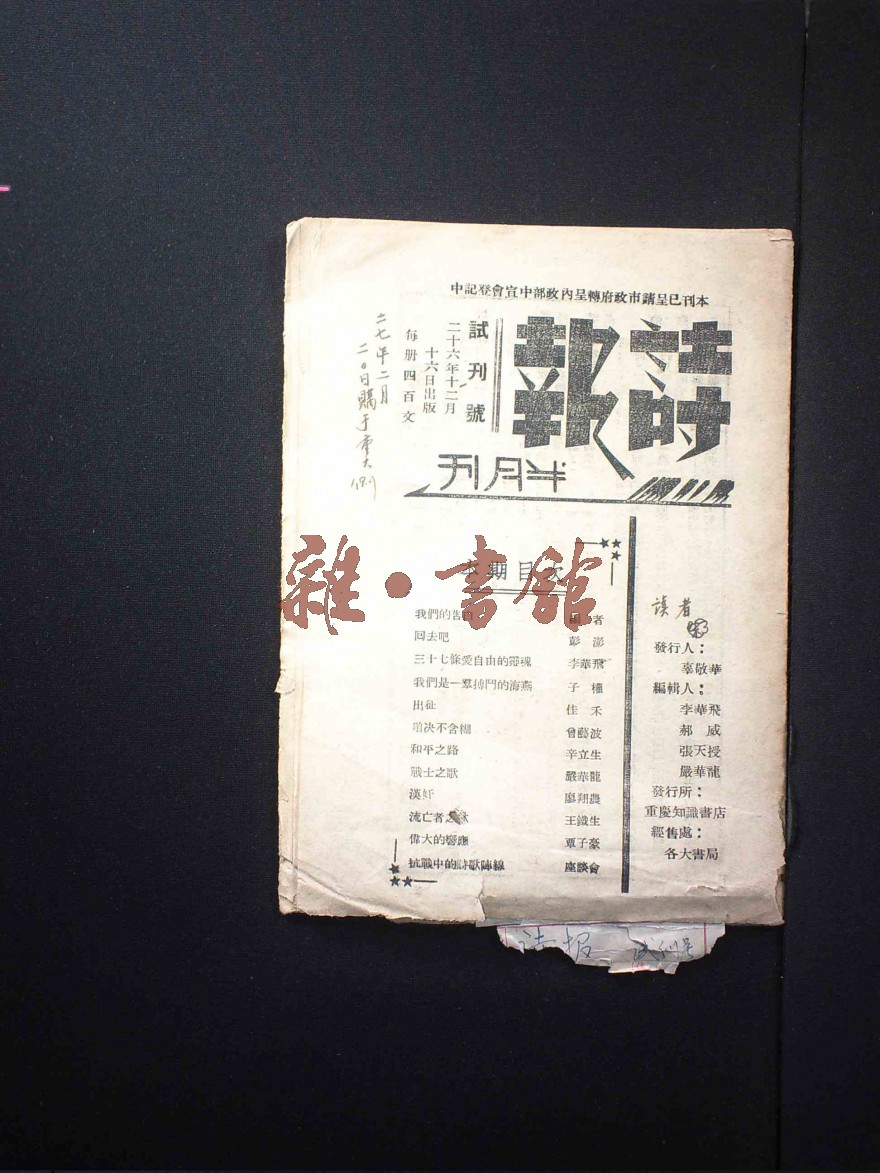 本刊已呈請市政府轉呈內政部中宣會登記中
詩報
半月刊
試刊號
二十六年十二月
十六日出版
每册四百文
二七年二月
二〇日購于重大
本期目次
我們的告白 編者
回去吧 彭澎
三十七條愛自由的靈魂 李華飛
我們是一羣搏鬥的海燕 子橿
出征 佳禾
咱决不含糊 曾藝波
和平之路 辛立生
戰士之歌 嚴華龍
漢奸 廖翔農
流亡者之 王鐵生
偉大的響應 覃子豪
抗戰中的詩歌陣線 座談會
讀者
發行人：
辜敬華
編輯人：
李華飛
郝威
張天授
嚴華龍
發行所：
重慶知識書店
經售處：
各大書局
诗报 试刊号
雜·書館